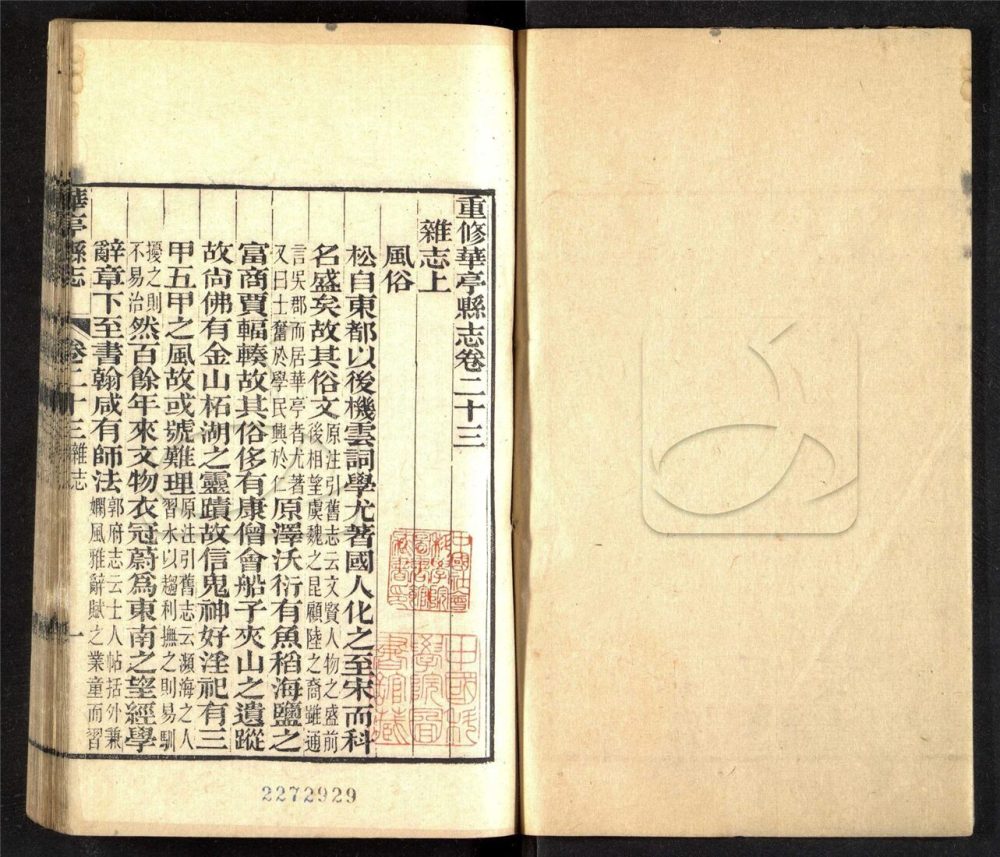 重修華亭縣志卷二十三
雜志上
風俗
松自東都以後機雲詞學尤著國人化之至宋而科
名盛矣故其俗文原注引舊志云文賢人物之盛前後相望虞魏之昆顧陸之裔雖通
言吳郡而居華亭者尤著又曰士奮於學民興於仁原澤沃衍有魚稻海鹽之
富商賈輻輳故其俗侈有康僧會船子夾山之遺蹤
故尚佛有金山柘湖之靈蹟故信鬼神好淫祀有三
甲五甲之風故或號難理原注引舊志云瀕海之人習水以趨利撫之則易馴
擾之則不易治然百餘年來文物衣冠蔚爲東南之望經學
辭章下至書翰咸有師法郭府志云士人帖括外兼嫻風雅辭賦之業童而習
華亭縣志
卷二十三 雜志
一
中國社會科學院圖書館藏
2272929